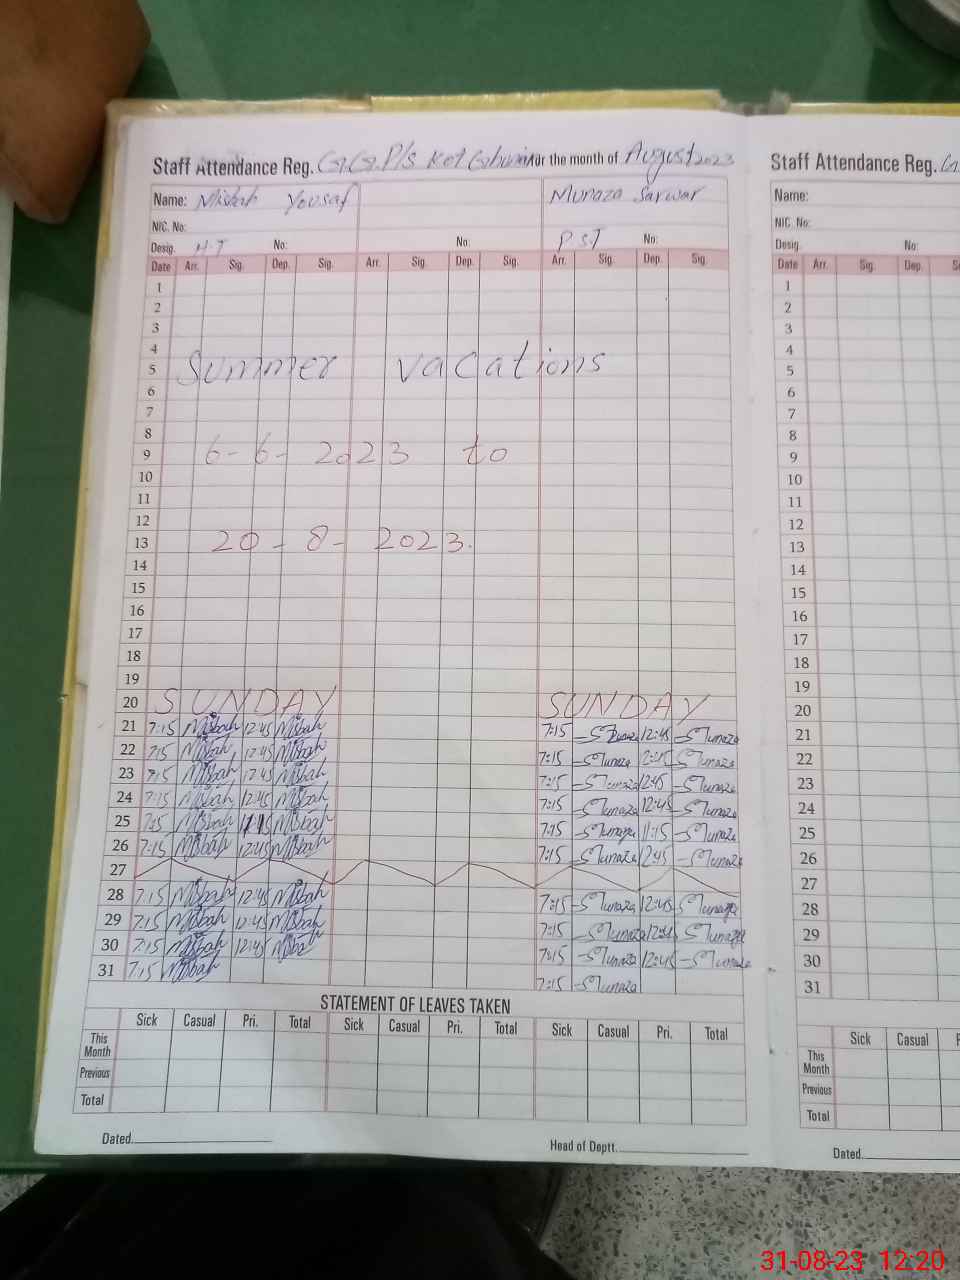 Staff Attendance Reg. G.G.P/s Kot for the month of August 2023
Name: Misbah Yousaf Munaza Sarwar
NIC. No:
Desig. H.T No: No: P.S.T No:
Date Arr. Sig. Dep. Sig. Arr. Sig. Dep. Sig. Arr. Sig. Dep. Sig.
1
2
3
4
5 Summer vacations
6
7
8
9 6-6-2023 to
10
11
12
13 20-8-2023.
14
15
16
17
18
19
20 SUNDAY SUNDAY
21 7:15 Misbah 12:45 Misbah 7:15 Munaza 12:45 Munaza
22 7:15 Misbah 12:45 Misbah 7:15 Munaza 12:45 Munaza
23 7:15 Misbah 12:45 Misbah 7:15 Munaza 12:45 Munaza
24 7:15 Misbah 12:45 Misbah 7:15 Munaza 12:45 Munaza
25 7:15 Misbah 11:15 Misbah 7:15 Munaza 11:15 Munaza
26 7:15 Misbah 12:45 Misbah 7:15 Munaza 12:45 Munaza
27
28 7:15 Misbah 12:45 Misbah 7:15 Munaza 12:45 Munaza
29 7:15 Misbah 12:45 Misbah 7:15 Munaza 12:45 Munaza
30 7:15 Misbah 12:45 Misbah 7:15 Munaza 12:45 Munaza
31 7:15 Misbah 7:15 Munaza
STATEMENT OF LEAVES TAKEN
Sick Casual Pri. Total Sick Casual Pri. Total Sick Casual Pri. Total
This Month
Previous
Total
Dated. Head of Deptt.
Staff Attendance Reg.
Name:
NIC. No:
Desig. No:
Date Arr. Sig. Dep.
1
2
3
4
5
6
7
8
9
10
11
12
13
14
15
16
17
18
19
20
21
22
23
24
25
26
27
28
29
30
31
Sick Casual
This Month
Previous
Total
Dated.
31-08-23 12:20